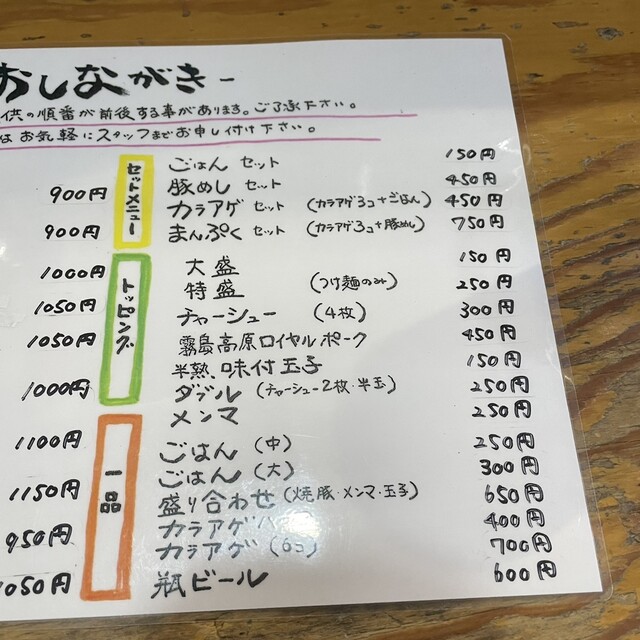 おしながき
供の順番が前後する事があります。ご了承下さい。
はお気軽にスタッフまでお申し付け下さい。
900円
900円
1000円
1050円
1050円
1000円
1100円
1150円
950円
1050円
セットメニュー
ごはん セット 150円
豚めし セット 450円
カラアゲ セット (カラアゲ3コ+ごはん) 450円
まんぷく セット (カラアゲ3コ+豚めし) 750円
トッピング
大盛 150円
特盛 (つけ麺のみ) 250円
チャーシュー (4枚) 300円
霧島高原ロイヤルポーク 450円
半熟味付玉子 150円
ダブル (チャーシュー2枚・半玉) 250円
メンマ 250円
一品
ごはん (中) 250円
ごはん (大) 300円
盛り合わせ (焼豚・メンマ・玉子) 650円
カラアゲ 400円
カラアゲ (6コ) 700円
瓶ビール 600円